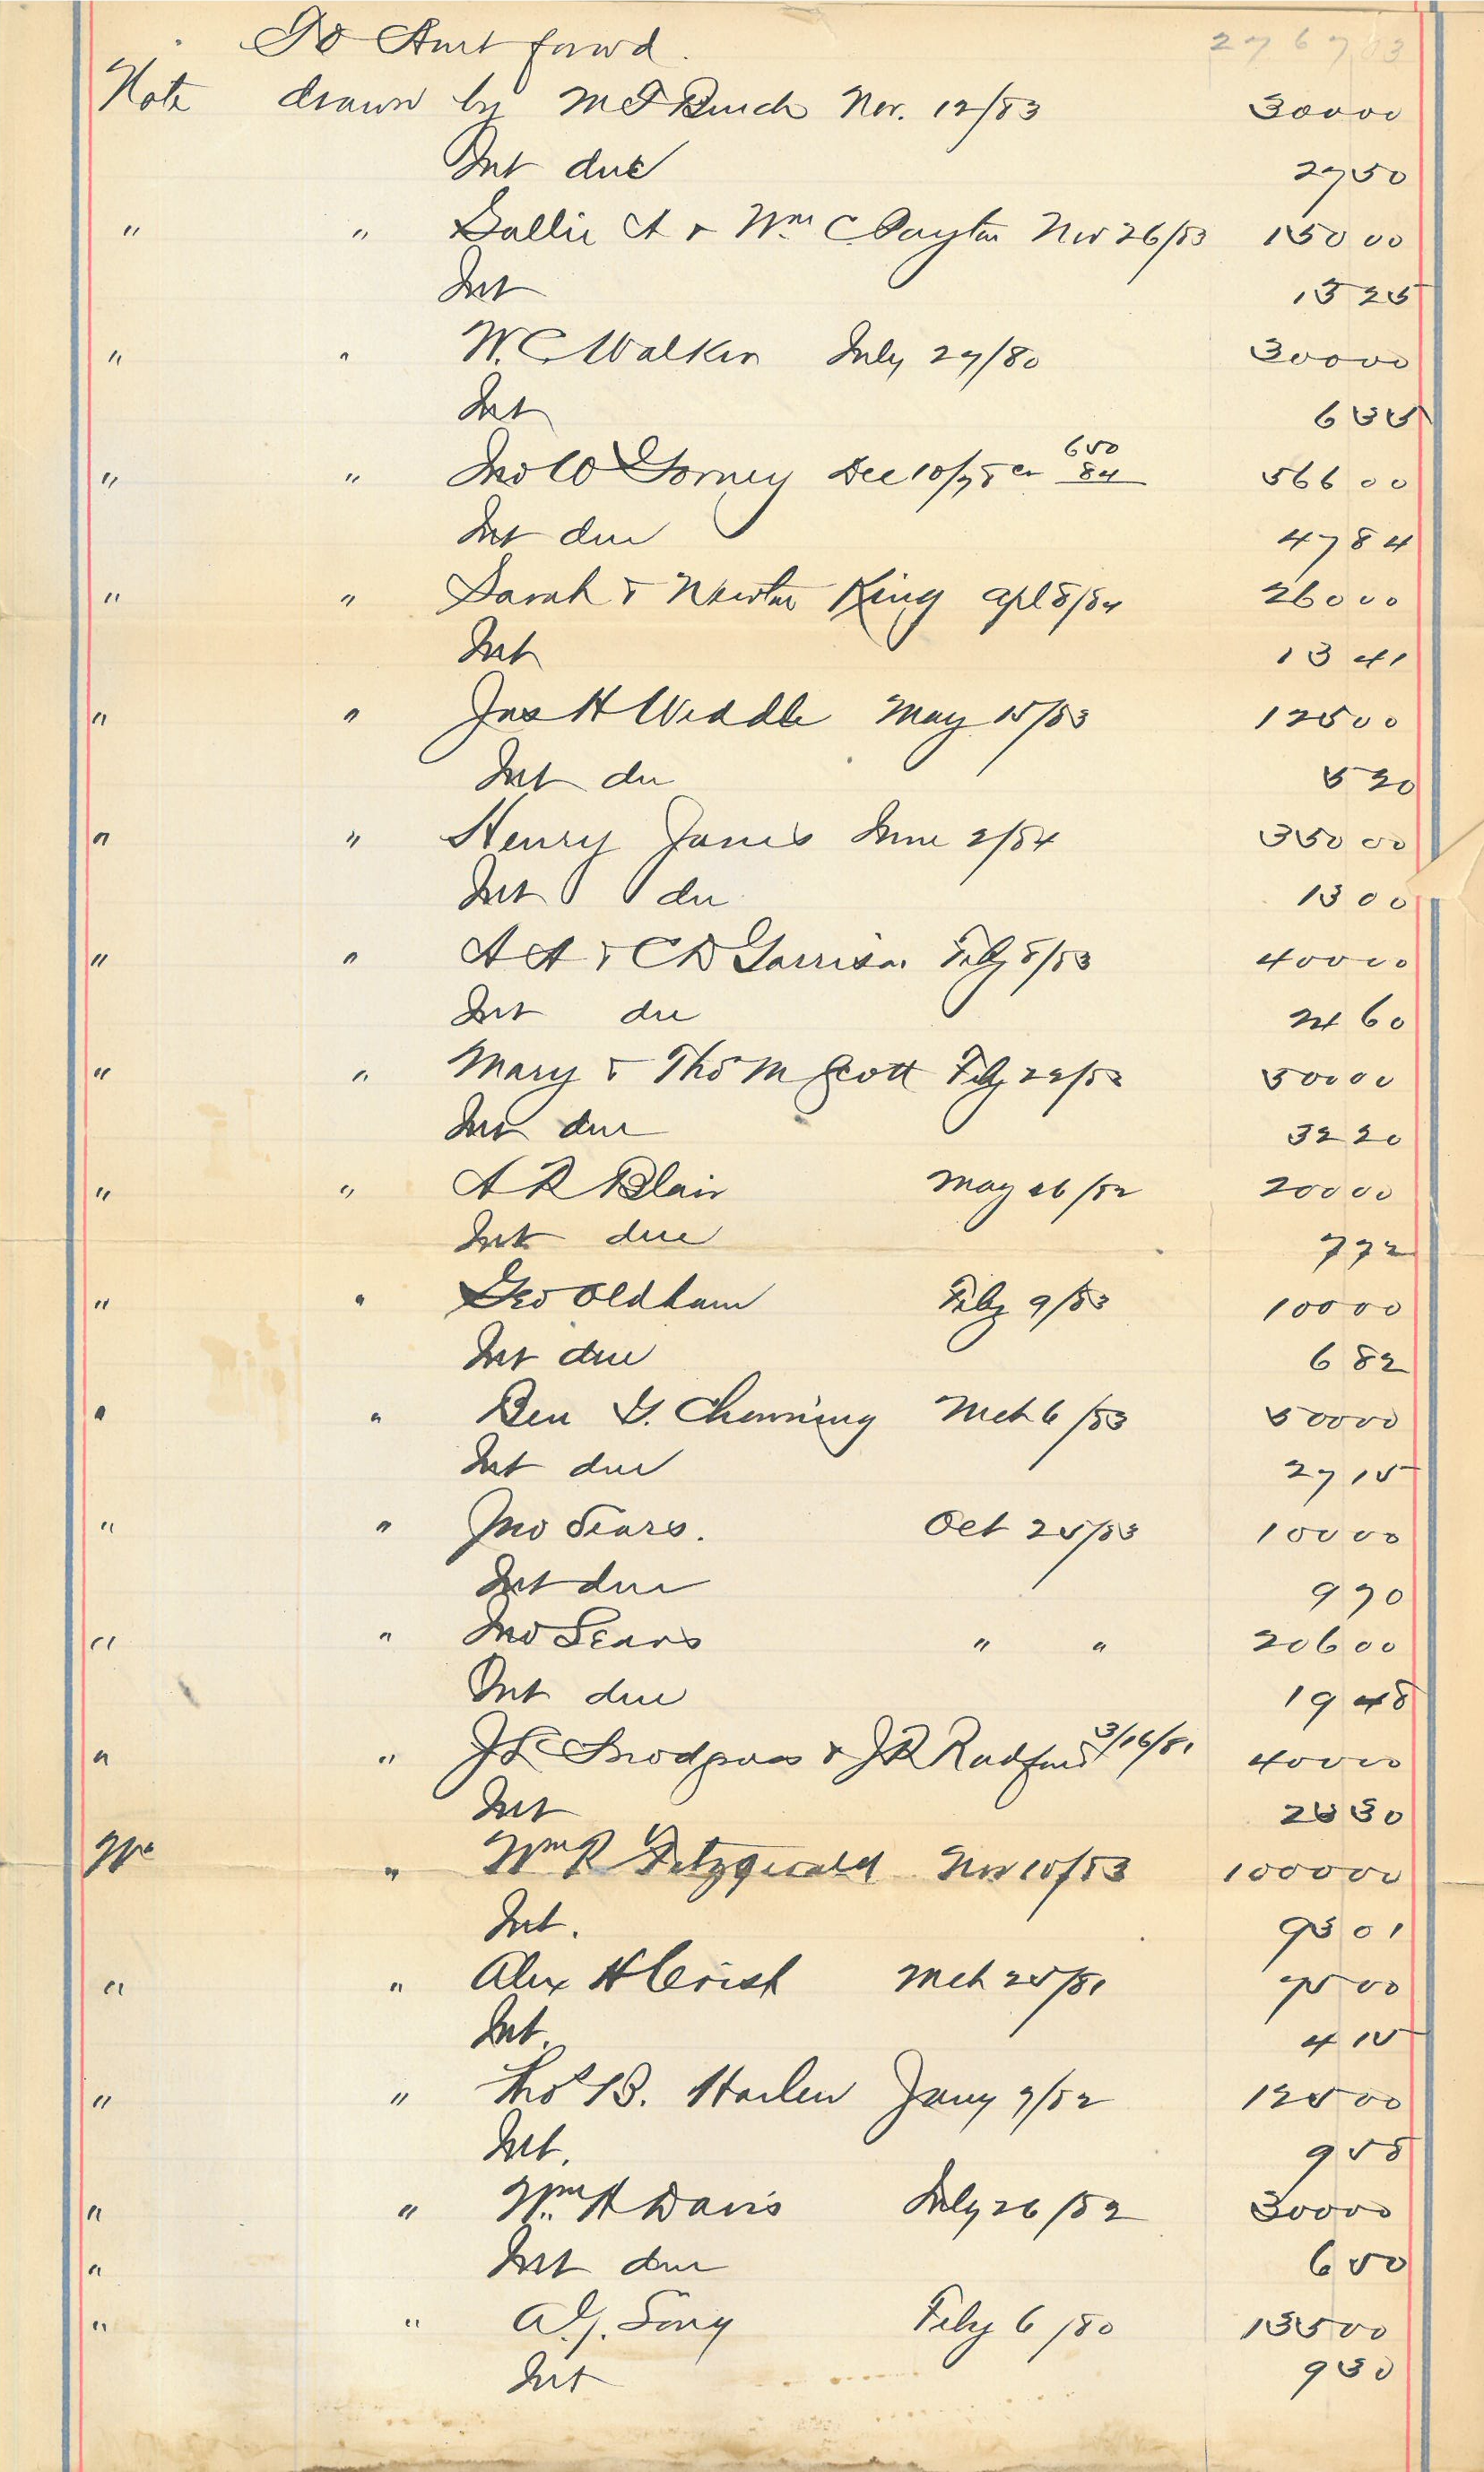 To Amt forwd. 2767 03
Note drawn by M F Burch Nov. 12/83 300 00
Int due 27 50
" " Sallie A & Wm Clayton Nov 26/83 150 00
Int 13 25
" " W. C. Walker July 27/80 300 00
Int 6 55
" " Jno W Gorney Dec 10/78 cr 650 84 566 00
Int due 47 84
" " Sarah & Newton King Apl 8/84 260 00
Int 13 41
" " Jas H Weddle May 15/83 125 00
Int du 5 20
" " Henry Jones June 2/84 350 00
Int du 13 00
" " A A & C D Garrison Feby 8/83 400 00
Int du 24 60
" " Mary & Thos M Scott Feby 22/83 500 00
Int due 32 20
" " A R Blair May 26/82 200 00
Int due 7 72
" " Geo Oldham Feby 9/83 100 00
Int due 6 82
" " Ben G. Chenning Mch 6/83 500 00
Int due 27 15
" " Jno Sears. Oct 25/83 100 00
Int due 9 70
" " Jno Sears " " 206 00
Int due 19 48
" " J L Snodgrass & J R Radford 3/16/81 400 00
Int 25 30
" Wm R Fitzgerald Nov 10/83 1000 00
Int. 95 01
" " Alex H Crist Mch 25/81 75 00
Int. 4 15
" " Thos B. Harlen Jany 9/82 125 00
Int. 9 58
" " Wm. H Davis July 26/82 300 00
" Int due 6 50
" " A. J. Song Feby 6/80 135 00
Int 9 30